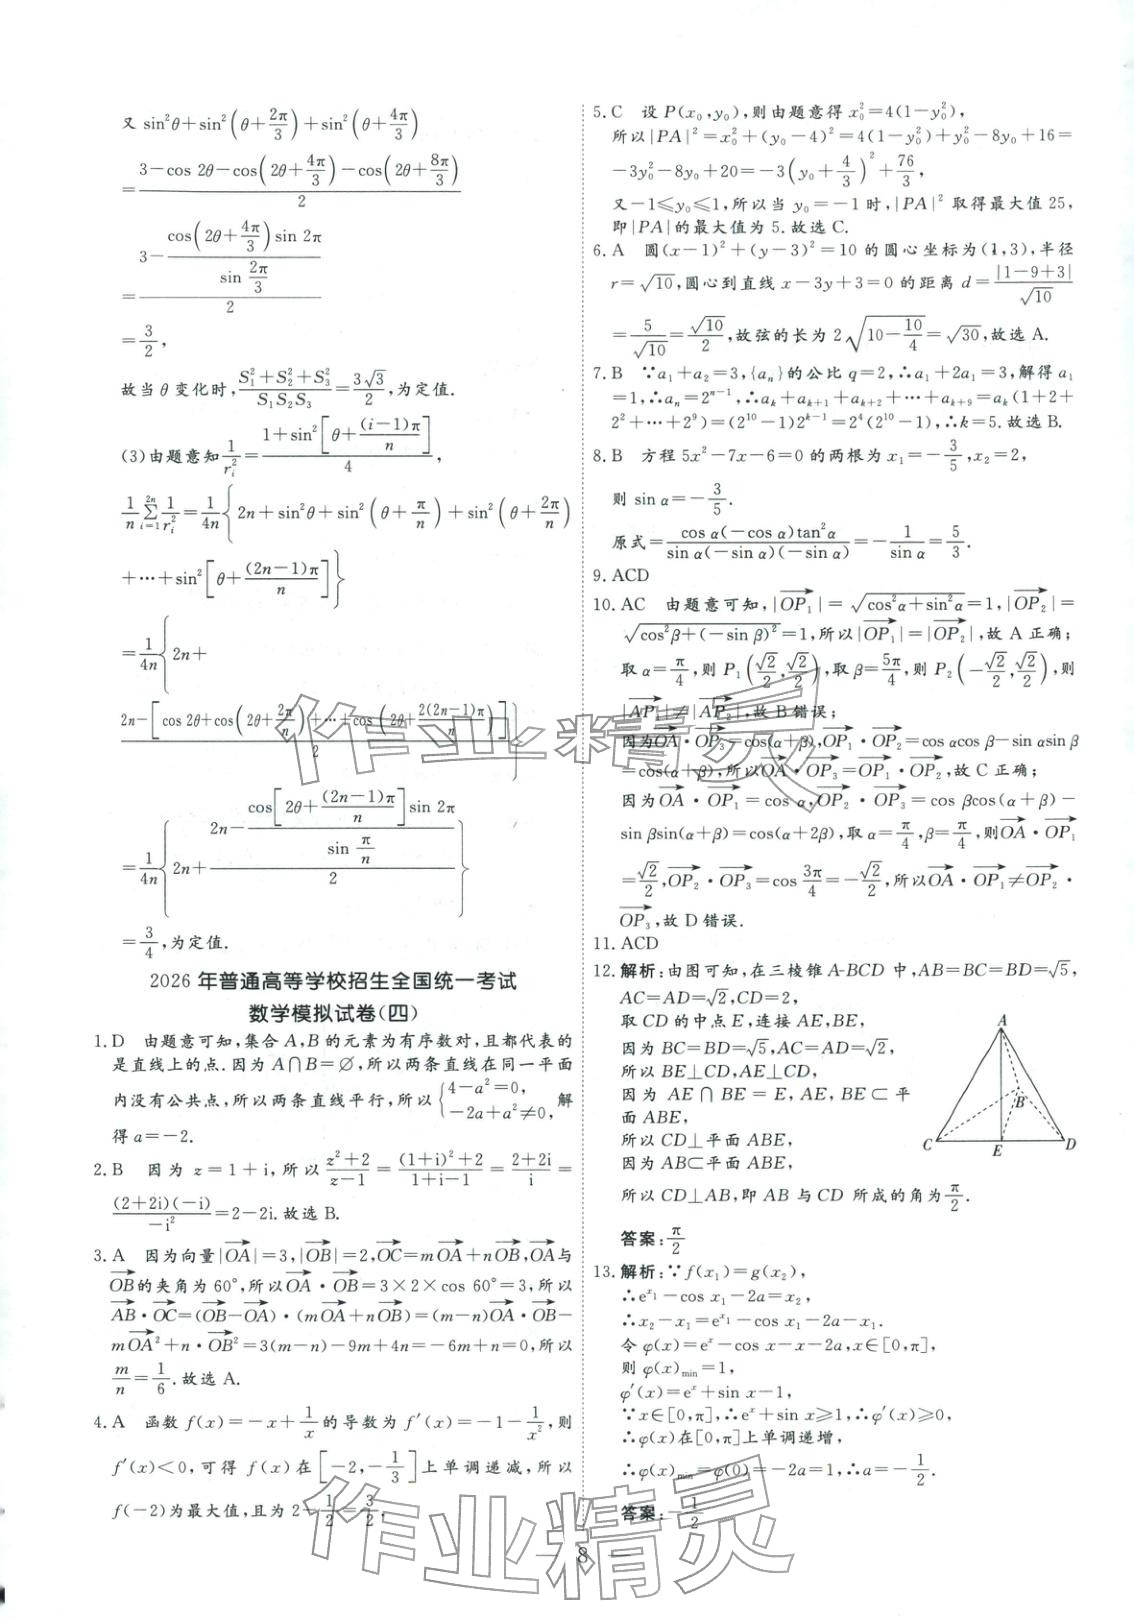 又 sin²θ+sin²(θ+2π/3)+sin²(θ+4π/3)
=(3-cos 2θ-cos(2θ+4π/3)-cos(2θ+8π/3))/2
=(3-(cos(2θ+4π/3)sin 2π)/(sin 2π/3))/2
=3/2,
故当θ变化时,(S₁²+S₂²+S₃²)/(S₁S₂S₃)=3√3/2,为定值.
(3)由题意知1/rᵢ²=(1+sin²[θ+(i-1)π/n])/4,
1/n ∑(i=1→2n) 1/rᵢ²=1/4n{2n+sin²θ+sin²(θ+π/n)+sin²(θ+2π/n)
+⋯+sin²[θ+(2n-1)π/n]}
=1/4n{2n+
(2n-[cos 2θ+cos(2θ+2π/n)+⋯+cos(2θ+2(2n-1)π/n)])/2}
=1/4n{2n+(2n-(cos[2θ+(2n-1)π/n]sin 2π)/(sin π/n))/2}
=3/4,为定值.
2026年普通高等学校招生全国统一考试
数学模拟试卷(四)
1. D 由题意可知,集合A,B的元素为有序数对,且都代表的
是直线上的点.因为A∩B=∅,所以两条直线在同一平面
内没有公共点,所以两条直线平行,所以{4-a²=0, -2a+a²≠0,解
得a=-2.
2. B 因为z=1+i,所以(z²+2)/(z-1)=((1+i)²+2)/(1+i-1)=(2+2i)/i=
(2+2i)(-i)/(-i²)=2-2i.故选B.
3. A 因为向量|OA→|=3,|OB→|=2,OC→=mOA→+nOB→,OA→与
OB→的夹角为60°,所以OA→·OB→=3×2×cos 60°=3,所以
AB→·OC→=(OB→-OA→)·(mOA→+nOB→)=(m-n)OA→·OB→-
mOA→²+n·OB→²=3(m-n)-9m+4n=-6m+n=0,所以
m/n=1/6.故选A.
4. A 函数f(x)=-x+1/x的导数为f′(x)=-1-1/x²,则
f′(x)<0,可得f(x)在[-2,-1/3]上单调递减,所以
f(-2)为最大值,且为2-1/2=3/2.
5. C 设P(x₀,y₀),则由题意得x₀²=4(1-y₀²),
所以|PA|²=x₀²+(y₀-4)²=4(1-y₀²)+y₀²-8y₀+16=
-3y₀²-8y₀+20=-3(y₀+4/3)²+76/3,
又-1≤y₀≤1,所以当y₀=-1时,|PA|²取得最大值25,
即|PA|的最大值为5.故选C.
6. A 圆(x-1)²+(y-3)²=10的圆心坐标为(1,3),半径
r=√10,圆心到直线x-3y+3=0的距离d=|1-9+3|/√10
=5/√10=√10/2,故弦的长为2√(10-10/4)=√30,故选A.
7. B ∵a₁+a₂=3,{aₙ}的公比q=2,∴a₁+2a₁=3,解得a₁
=1,∴aₙ=2ⁿ⁻¹,∴aₖ+aₖ₊₁+aₖ₊₂+⋯+aₖ₊₉=aₖ(1+2+
2²+⋯+2⁹)=(2¹⁰-1)2ᵏ⁻¹=2⁴(2¹⁰-1),∴k=5.故选B.
8. B 方程5x²-7x-6=0的两根为x₁=-3/5,x₂=2,
则sin α=-3/5.
原式=cos α(-cos α)tan²α/(sin α(-sin α)(-sin α))=-1/sin α=5/3.
9. ACD
10. AC 由题意可知,|OP₁→|=√(cos²α+sin²α)=1,|OP₂→|=
√(cos²β+(-sin β)²)=1,所以|OP₁→|=|OP₂→|,故A正确;
取α=π/4,则P₁(√2/2,√2/2),取β=5π/4,则P₂(-√2/2,√2/2),则
|AP₁→|≠|AP₂→|,故B错误;
因为OA→·OP₃→=cos(α+β),OP₁→·OP₂→=cos αcos β-sin αsin β
=cos(α+β),所以OA→·OP₃→=OP₁→·OP₂→,故C正确;
因为OA→·OP₁→=cos α,OP₂→·OP₃→=cos βcos(α+β)-
sin βsin(α+β)=cos(α+2β),取α=π/4,β=π/4,则OA→·OP₁→
=√2/2,OP₂→·OP₃→=cos 3π/4=-√2/2,所以OA→·OP₁→≠OP₂→·
OP₃→,故D错误.
11. ACD
12. 解析:由图可知,在三棱锥A-BCD中,AB=BC=BD=√5,
AC=AD=√2,CD=2,
取CD的中点E,连接AE,BE,
因为BC=BD=√5,AC=AD=√2,
所以BE⊥CD,AE⊥CD,
因为AE∩BE=E,AE,BE⊂平
面ABE,
所以CD⊥平面ABE,
因为AB⊂平面ABE,
所以CD⊥AB,即AB与CD所成的角为π/2.
A
B
C
E
D
答案:π/2
13. 解析:∵f(x₁)=g(x₂),
∴eˣ¹-cos x₁-2a=x₂,
∴x₂-x₁=eˣ¹-cos x₁-2a-x₁.
令φ(x)=eˣ-cos x-x-2a,x∈[0,π],
则φ(x)min=1,
φ′(x)=eˣ+sin x-1,
∵x∈[0,π],∴eˣ+sin x≥1,∴φ′(x)≥0,
∴φ(x)在[0,π]上单调递增,
∴φ(x)min=φ(0)=-2a=1,∴a=-1/2.
答案:-1/2
— 8 —
作业精灵
作业精灵